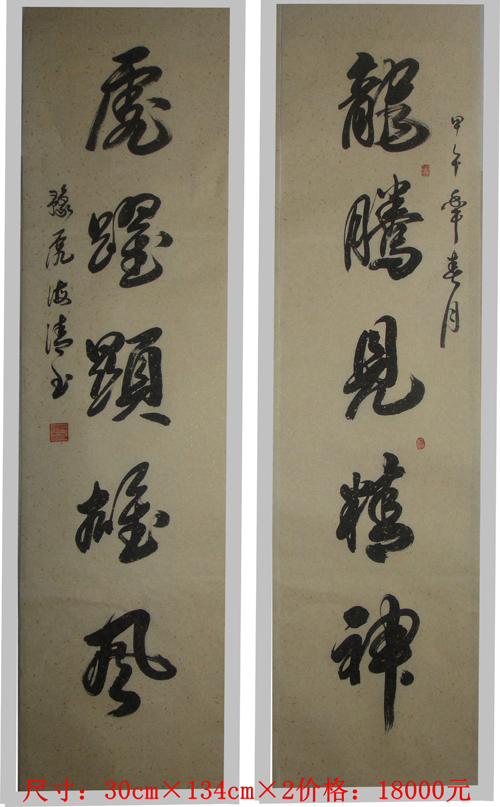 甲午年春月
龍騰見精神
虎躍顯雄風
海清书
尺寸：30cm×134cm×2价格：18000元